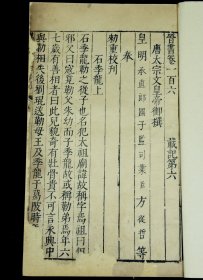 晉書卷一百六　載記第六
唐太宗文皇帝御撰
皇明承直郎國子監司業臣方從哲等
奉
勅重校刊
石季龍上
石季龍勒之從子也名犯太祖廟諱故稱字焉祖曰㔨
邪父曰寇覓勒父朱幼而子季龍故或稱勒弟焉年六
七歲有善相者曰此兒貌奇有壯骨貴不可言永興中
與勒相失後劉琨送勒母王及季龍于葛陂時